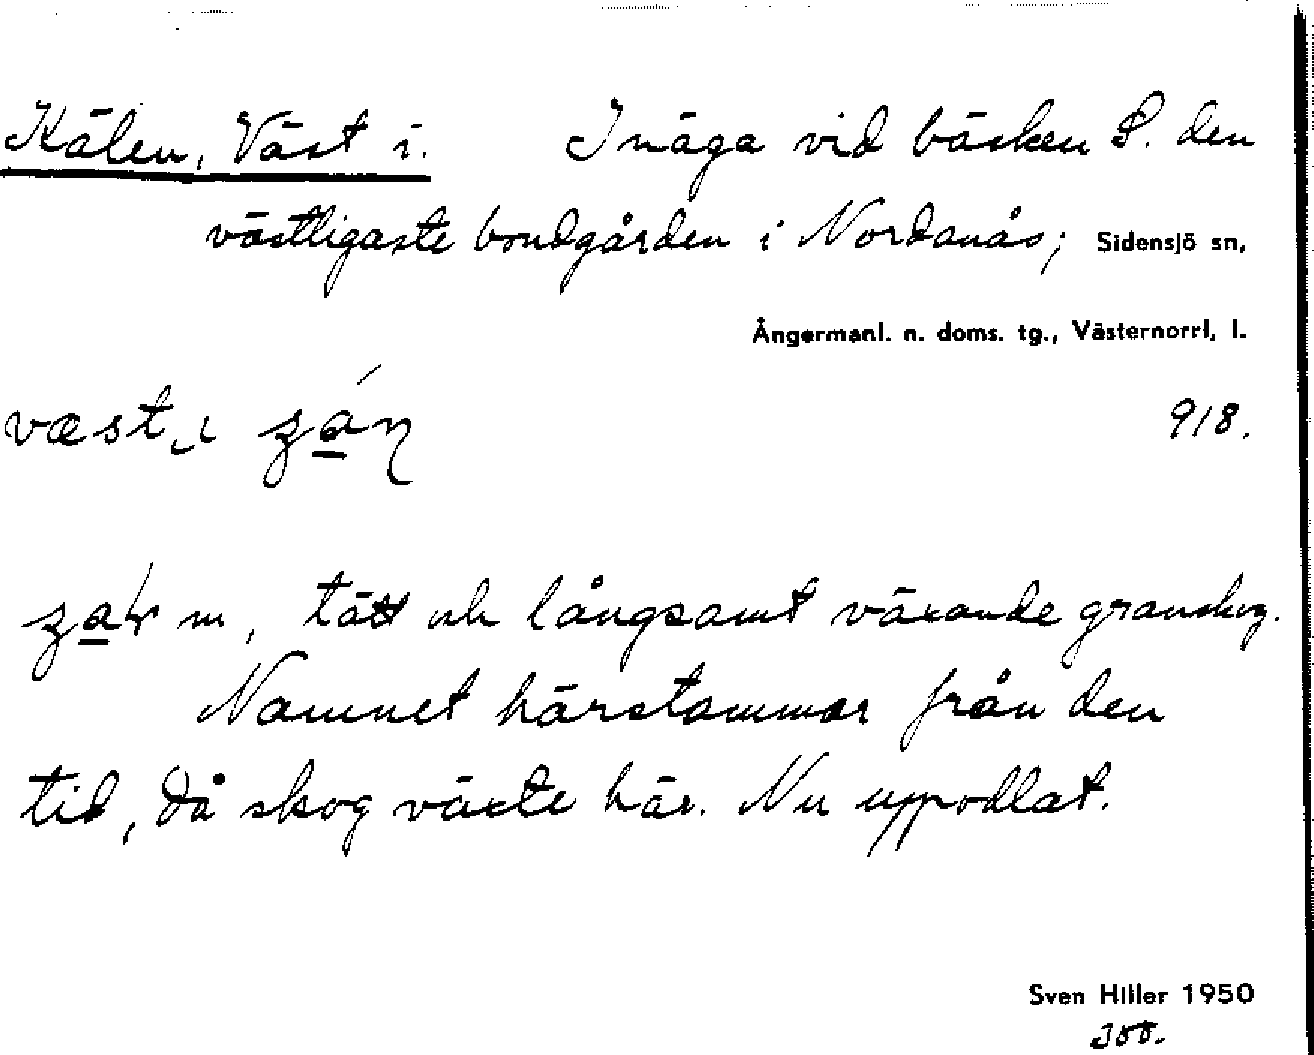 Kälen, Väst i. Inäga vid bäcken S. den
västligaste bondgården i Nordanås; Sidensjö sn,
Ångermanl. n. doms. tg., Västernorrl. l.
væst 918.
m, tätt och långsamt växande granskog.
Namnet härstammar från den
tid, då skog växte här. Nu uppodlat.
Sven Hiller 1950